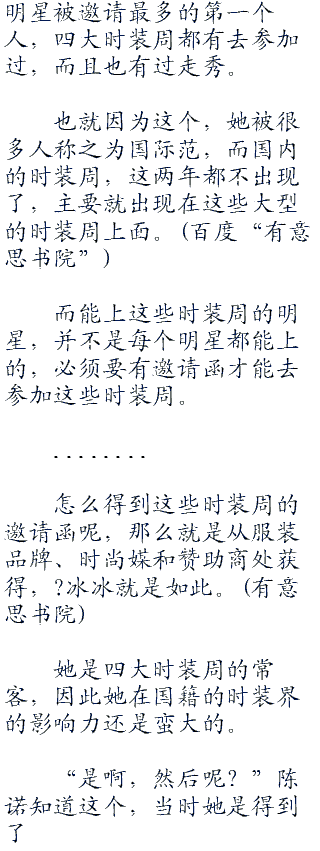 明星被邀请最多的第一个
人，四大时装周都有去参加
过，而且也有过走秀。
也就因为这个，她被很
多人称之为国际范，而国内
的时装周，这两年都不出现
了，主要就出现在这些大型
的时装周上面。(百度“有意
思书院”)
而能上这些时装周的明
星，并不是每个明星都能上
的，必须要有邀请函才能去
参加这些时装周。
........
怎么得到这些时装周的
邀请函呢，那么就是从服装
品牌、时尚媒和赞助商处获
得，?冰冰就是如此。(有意
思书院)
她是四大时装周的常
客，因此她在国籍的时装界
的影响力还是蛮大的。
“是啊，然后呢？”陈
诺知道这个，当时她是得到
了